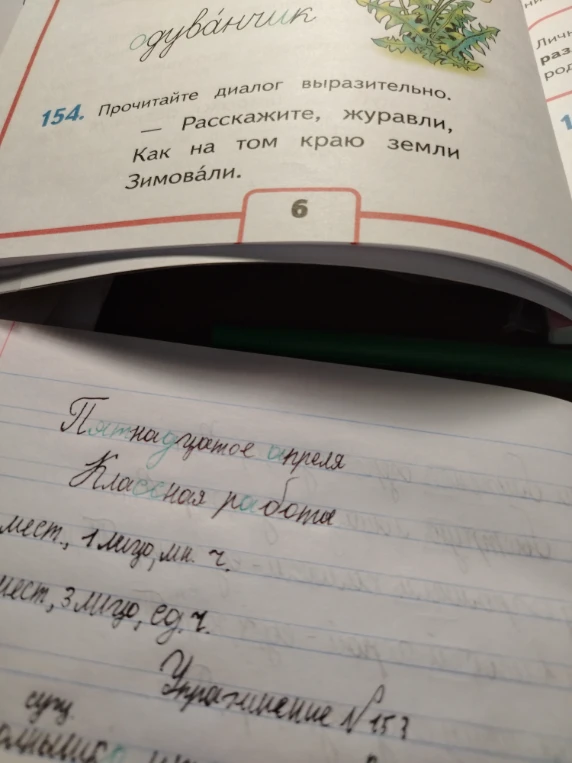 одува́нчик
154. Прочитайте диалог выразительно.
— Расскажите, журавли,
Как на том краю земли
Зимова́ли.
6
Личн
раз
род
1
Пятнадцатое апреля
Классная работа
мест., 1 лицо, мн. ч.
мест., 3 лицо, ед. ч.
Упражнение №153
сущ.